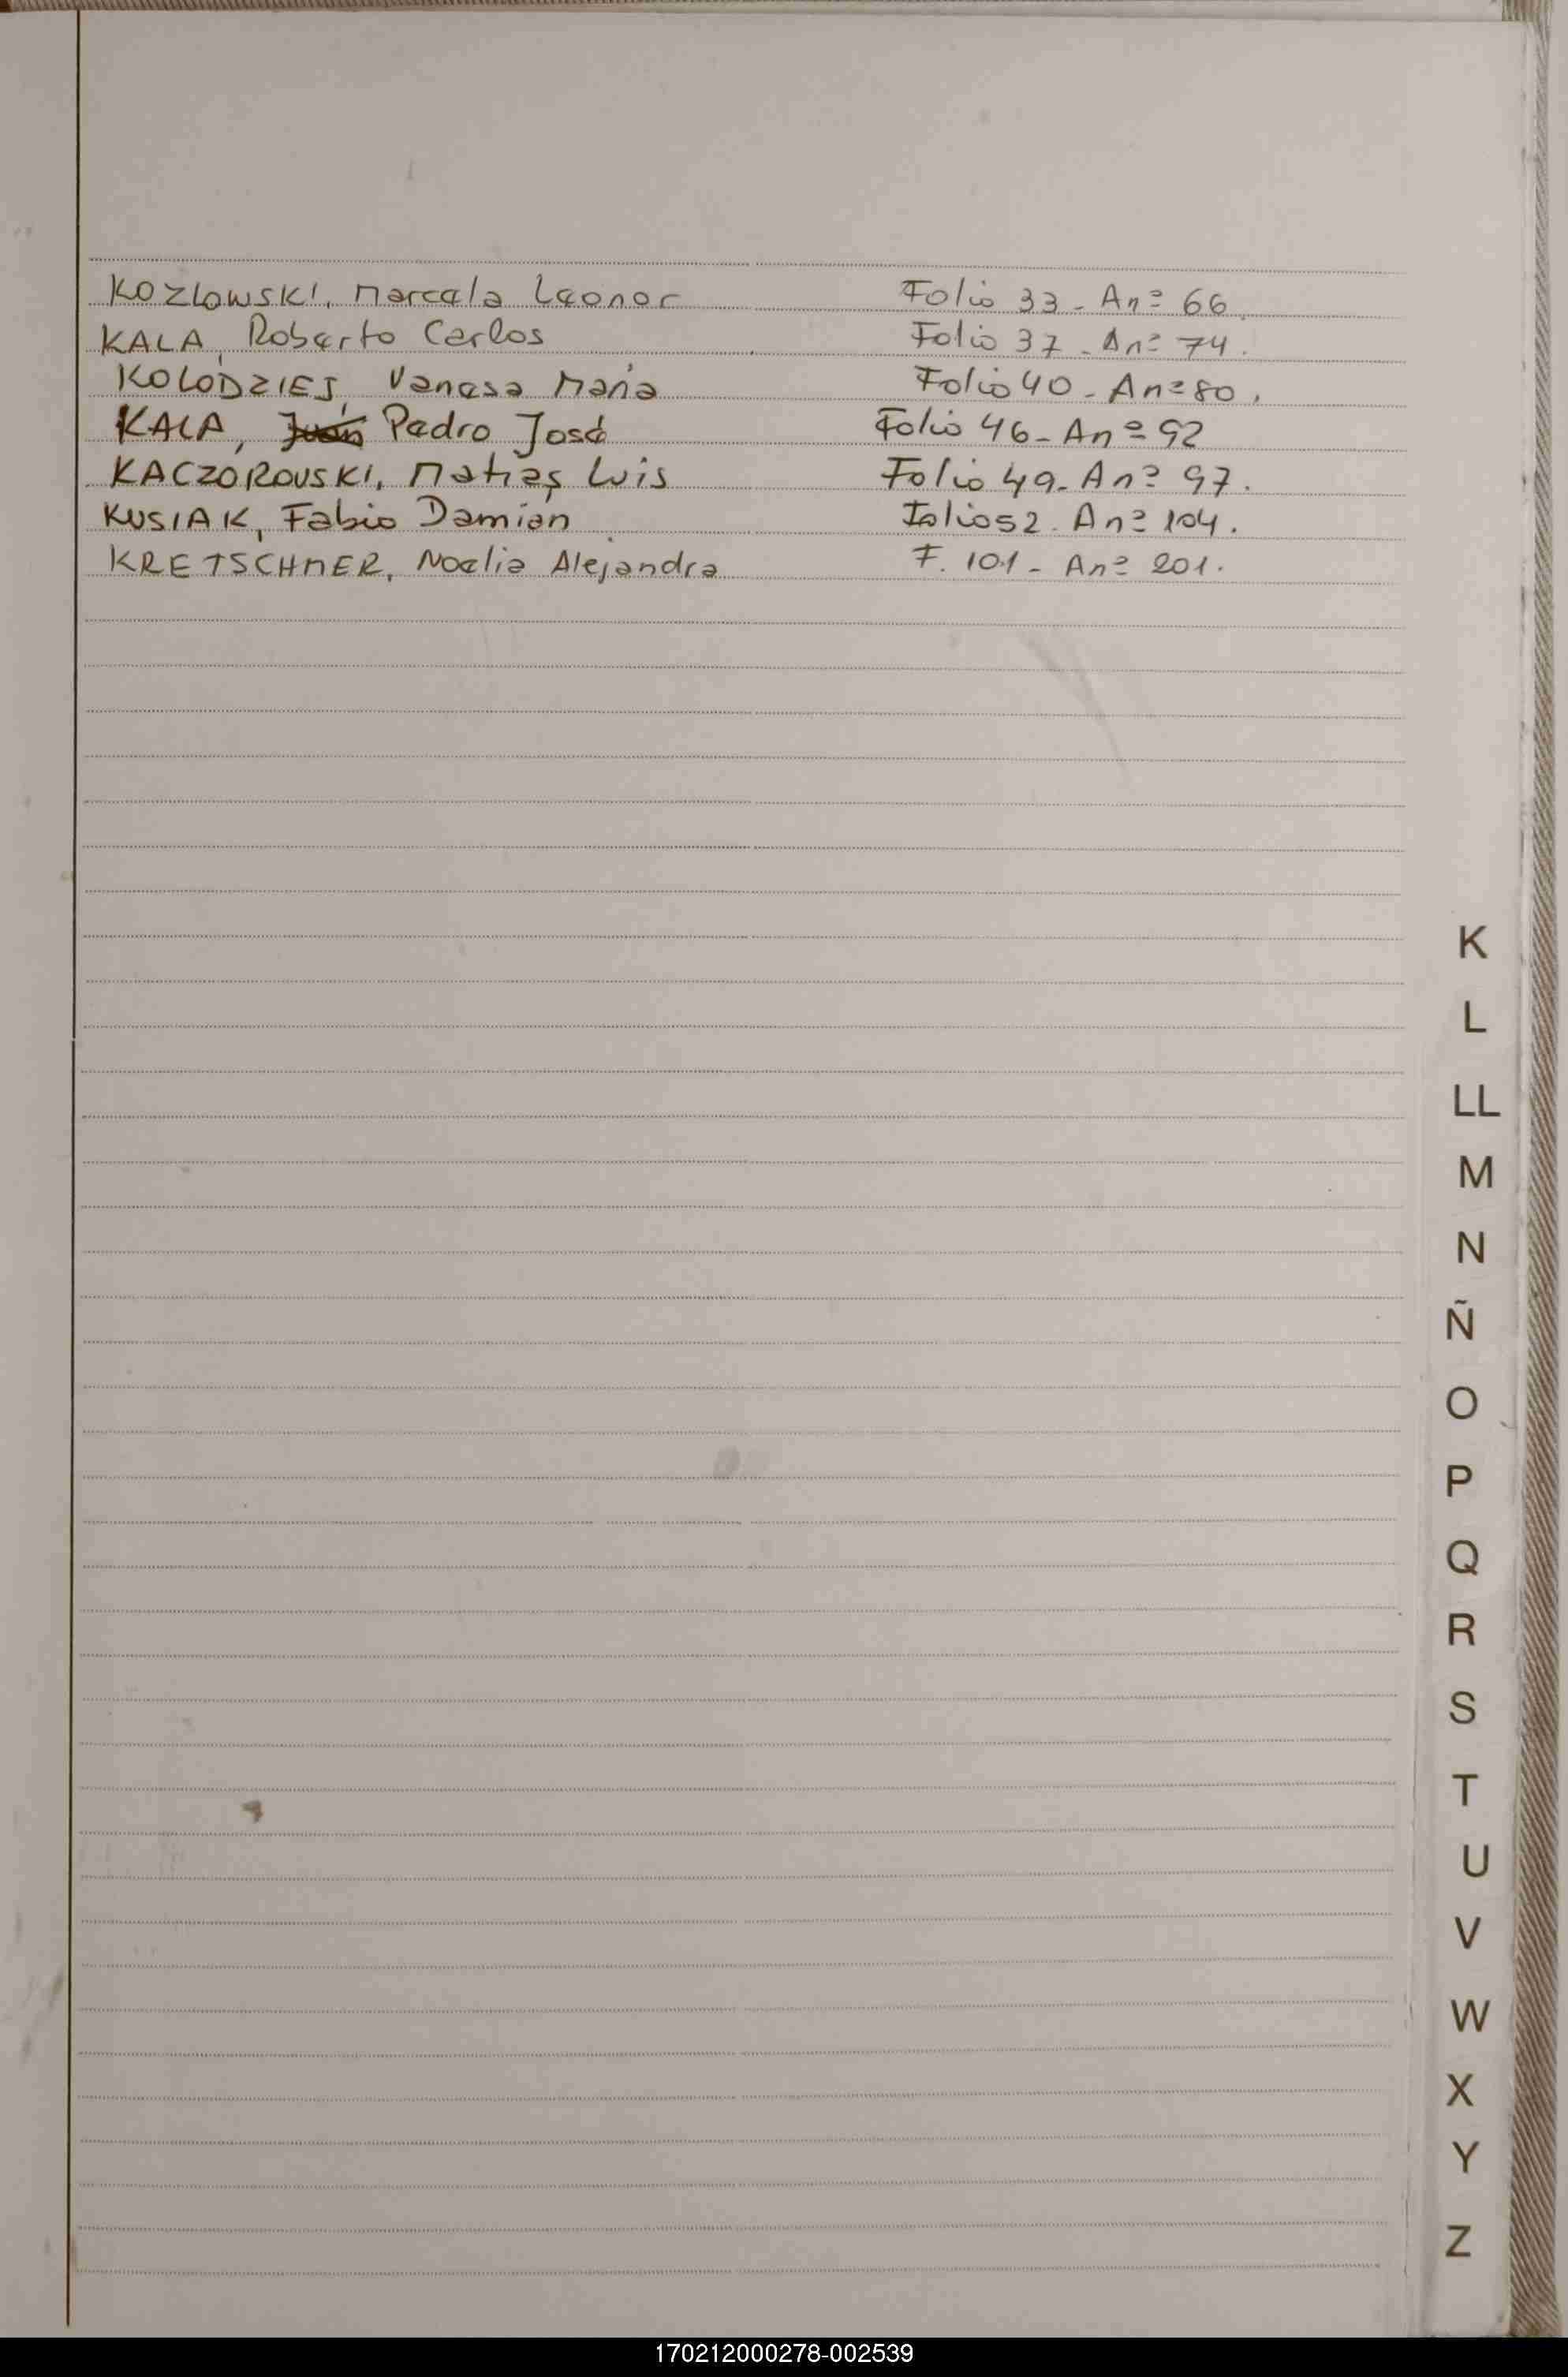 KOZLOWSKI, Marcela Leonor Folio 33 - An° 66.
KALA, Roberto Carlos Folio 37 - An° 74.
KOLODZIEJ, Vanesa Maria Folio 40 - An° 80.
KALA, Juan Pedro José Folio 46 - An° 92
KACZOROUSKI, Matias Luis Folio 49 - An° 97.
KUSIAK, Fabio Damian Folio 52 - An° 104.
KRETSCHMER, Noelia Alejandra F. 101 - An° 201.
K
L
LL
M
N
Ñ
O
P
Q
R
S
T
U
V
W
X
Y
Z
170212000278-002539